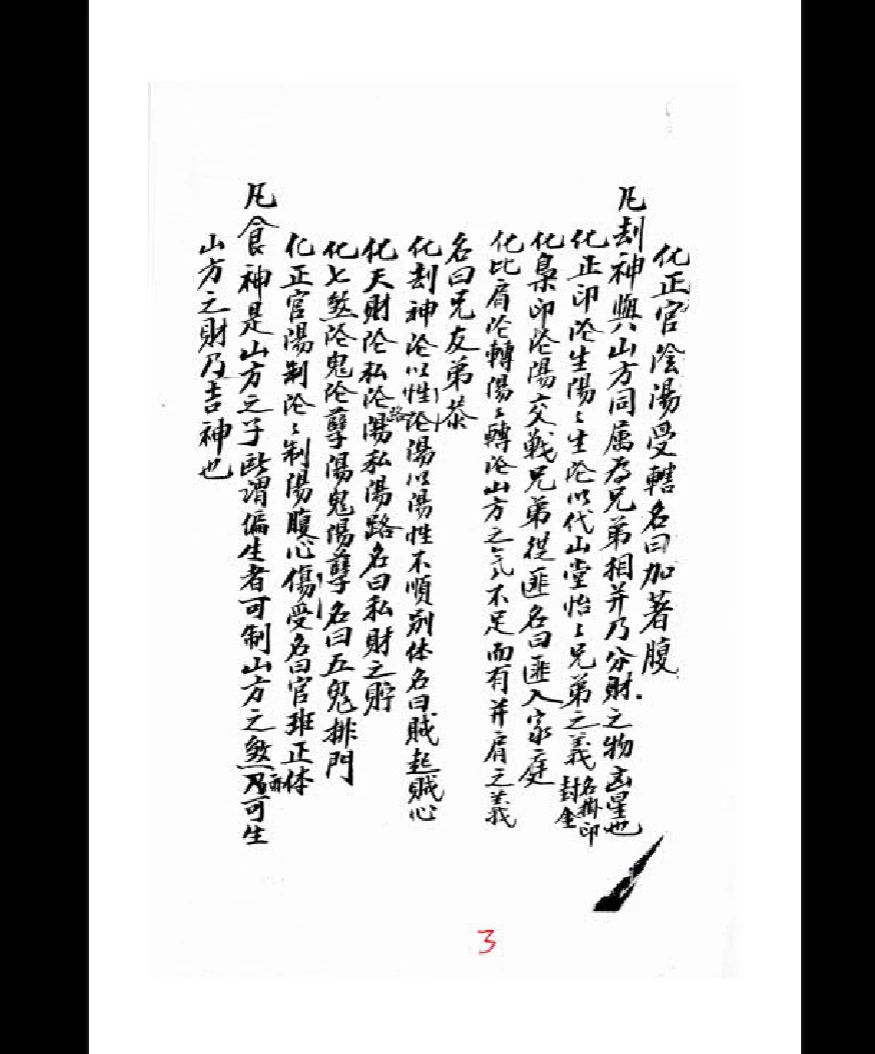 化正官陰陽受轄名曰加著腹
凡刦神與山方同属為兄弟相并乃分財之物凶星也
化正印陰生陽〻生陰以代山堂怡〻兄弟之義名掛印封金
化梟印陰陽交戰兄弟從匪名曰匪入家庭
化比肩陰轉陽〻轉陰山方之氣不足而有并肩之義
名曰兄友弟恭
化刦神陰以性陰陽以陽性不順别体名曰賊起賊心
化天財陰私陰路陽私陽路名曰私財之貯
化七煞陰鬼陰孽陽鬼陽孽名曰五鬼排門
化正官陽制陰〻制陽腹心傷受名曰官班正体
凡食神是山方之子所謂偏生者可制山方之煞亦乃可生
山方之財乃吉神也
3